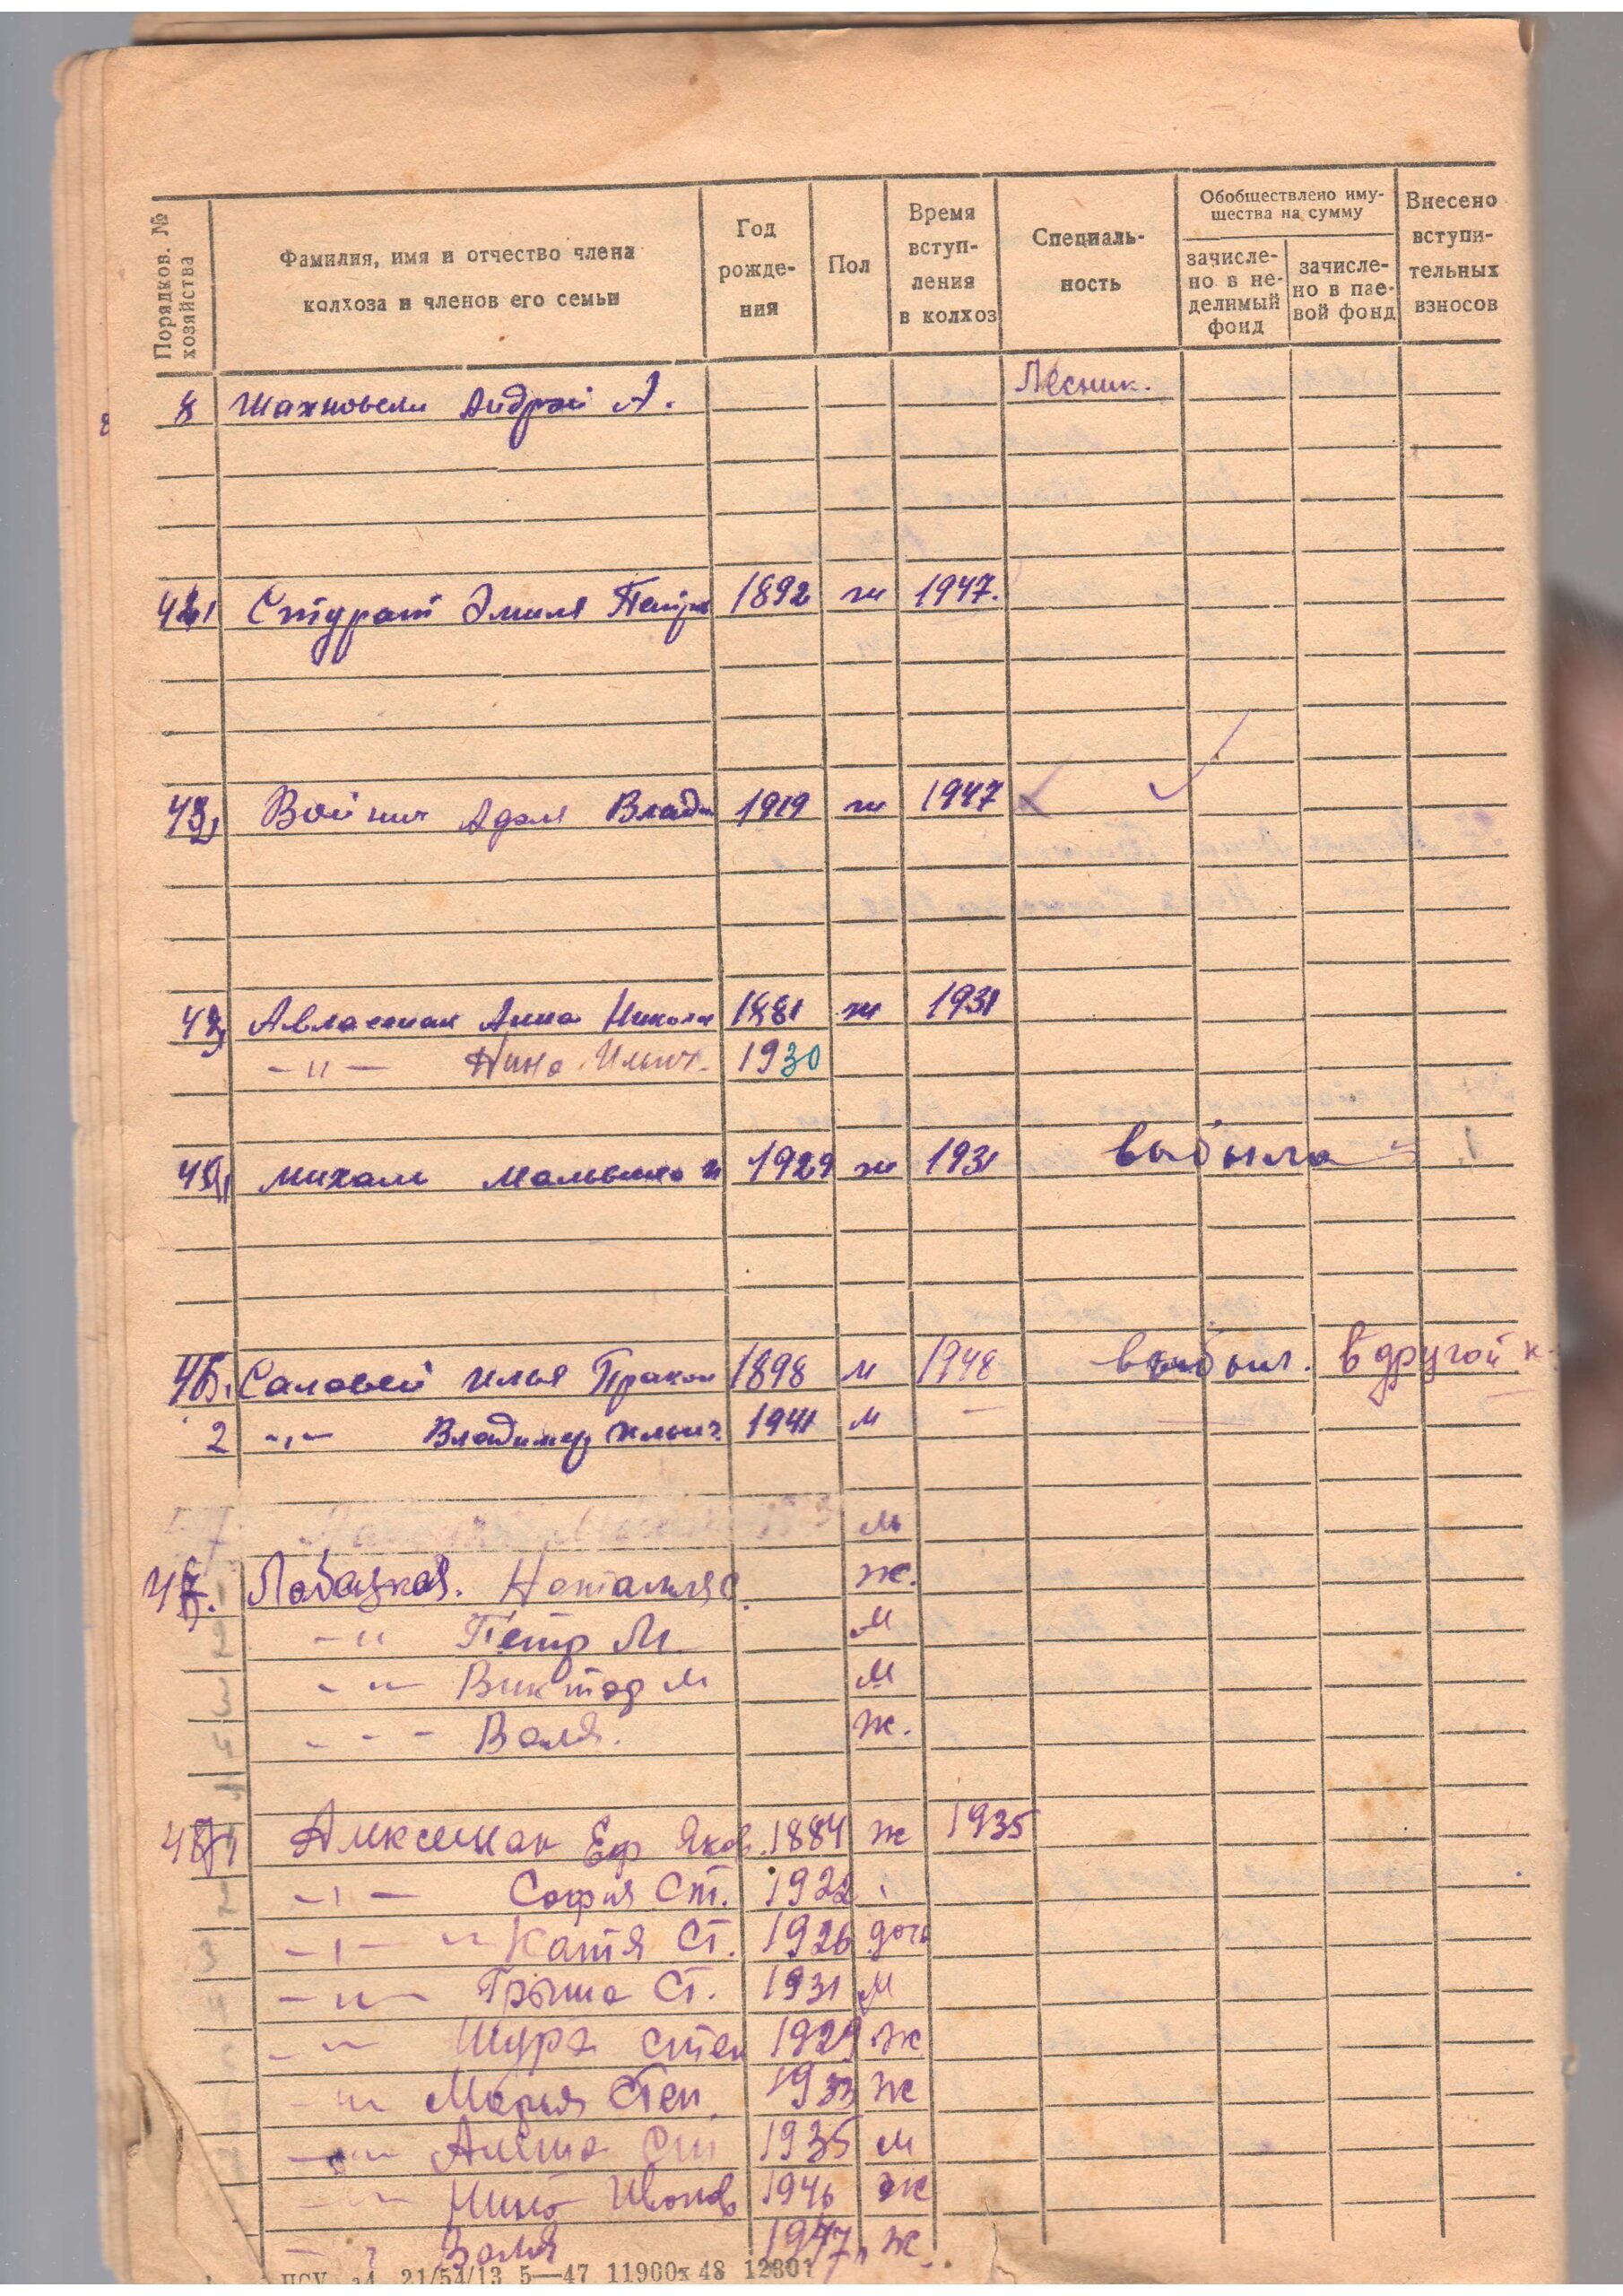 Порядков. № хозяйства
Фамилия, имя и отчество члена колхоза и членов его семьи
Год рожде-ния
Пол
Время вступ-ления в колхоз
Специаль-ность
Обобществлено иму-щества на сумму
зачисле-но в не-делимый фонд
зачисле-но в пае-вой фонд
Внесено вступи-тельных взносов
Андрэй А. Лесник.
Стурат Эмиля Петр 1892 ж 1947.
Войнич Адэля Влади 1919 ж 1947
Анна Никола 1881 ж 1931
-"- Нина Ильич. 1930
Михаль 1929 ж 1931 выбыла
46. Саловей Илья Пракоп 1898 м 1948 выбыл. в другой к
2 -"- Владимир Ильич. 1941 м —
м
47. Лобацкая. Наталля ж.
-"- Петр М. м
-"- Виктор М м
- - - Валя. ж.
Еф Яков. 1884 ж 1935
-"- София Ст. 1922
-"- Катя Ст. 1926 дочь
-"- Грыша Ст. 1931 м
-"- Шура Степ 1929 ж
-"- Мария Степ. 1933 ж
-"- Алёша Ст 1935 м
-"- Нина Иванов 1946 ж
-"- Валя 1947 ж.
ЦСУ з4 21/54/13 5—47 11900х48 12301